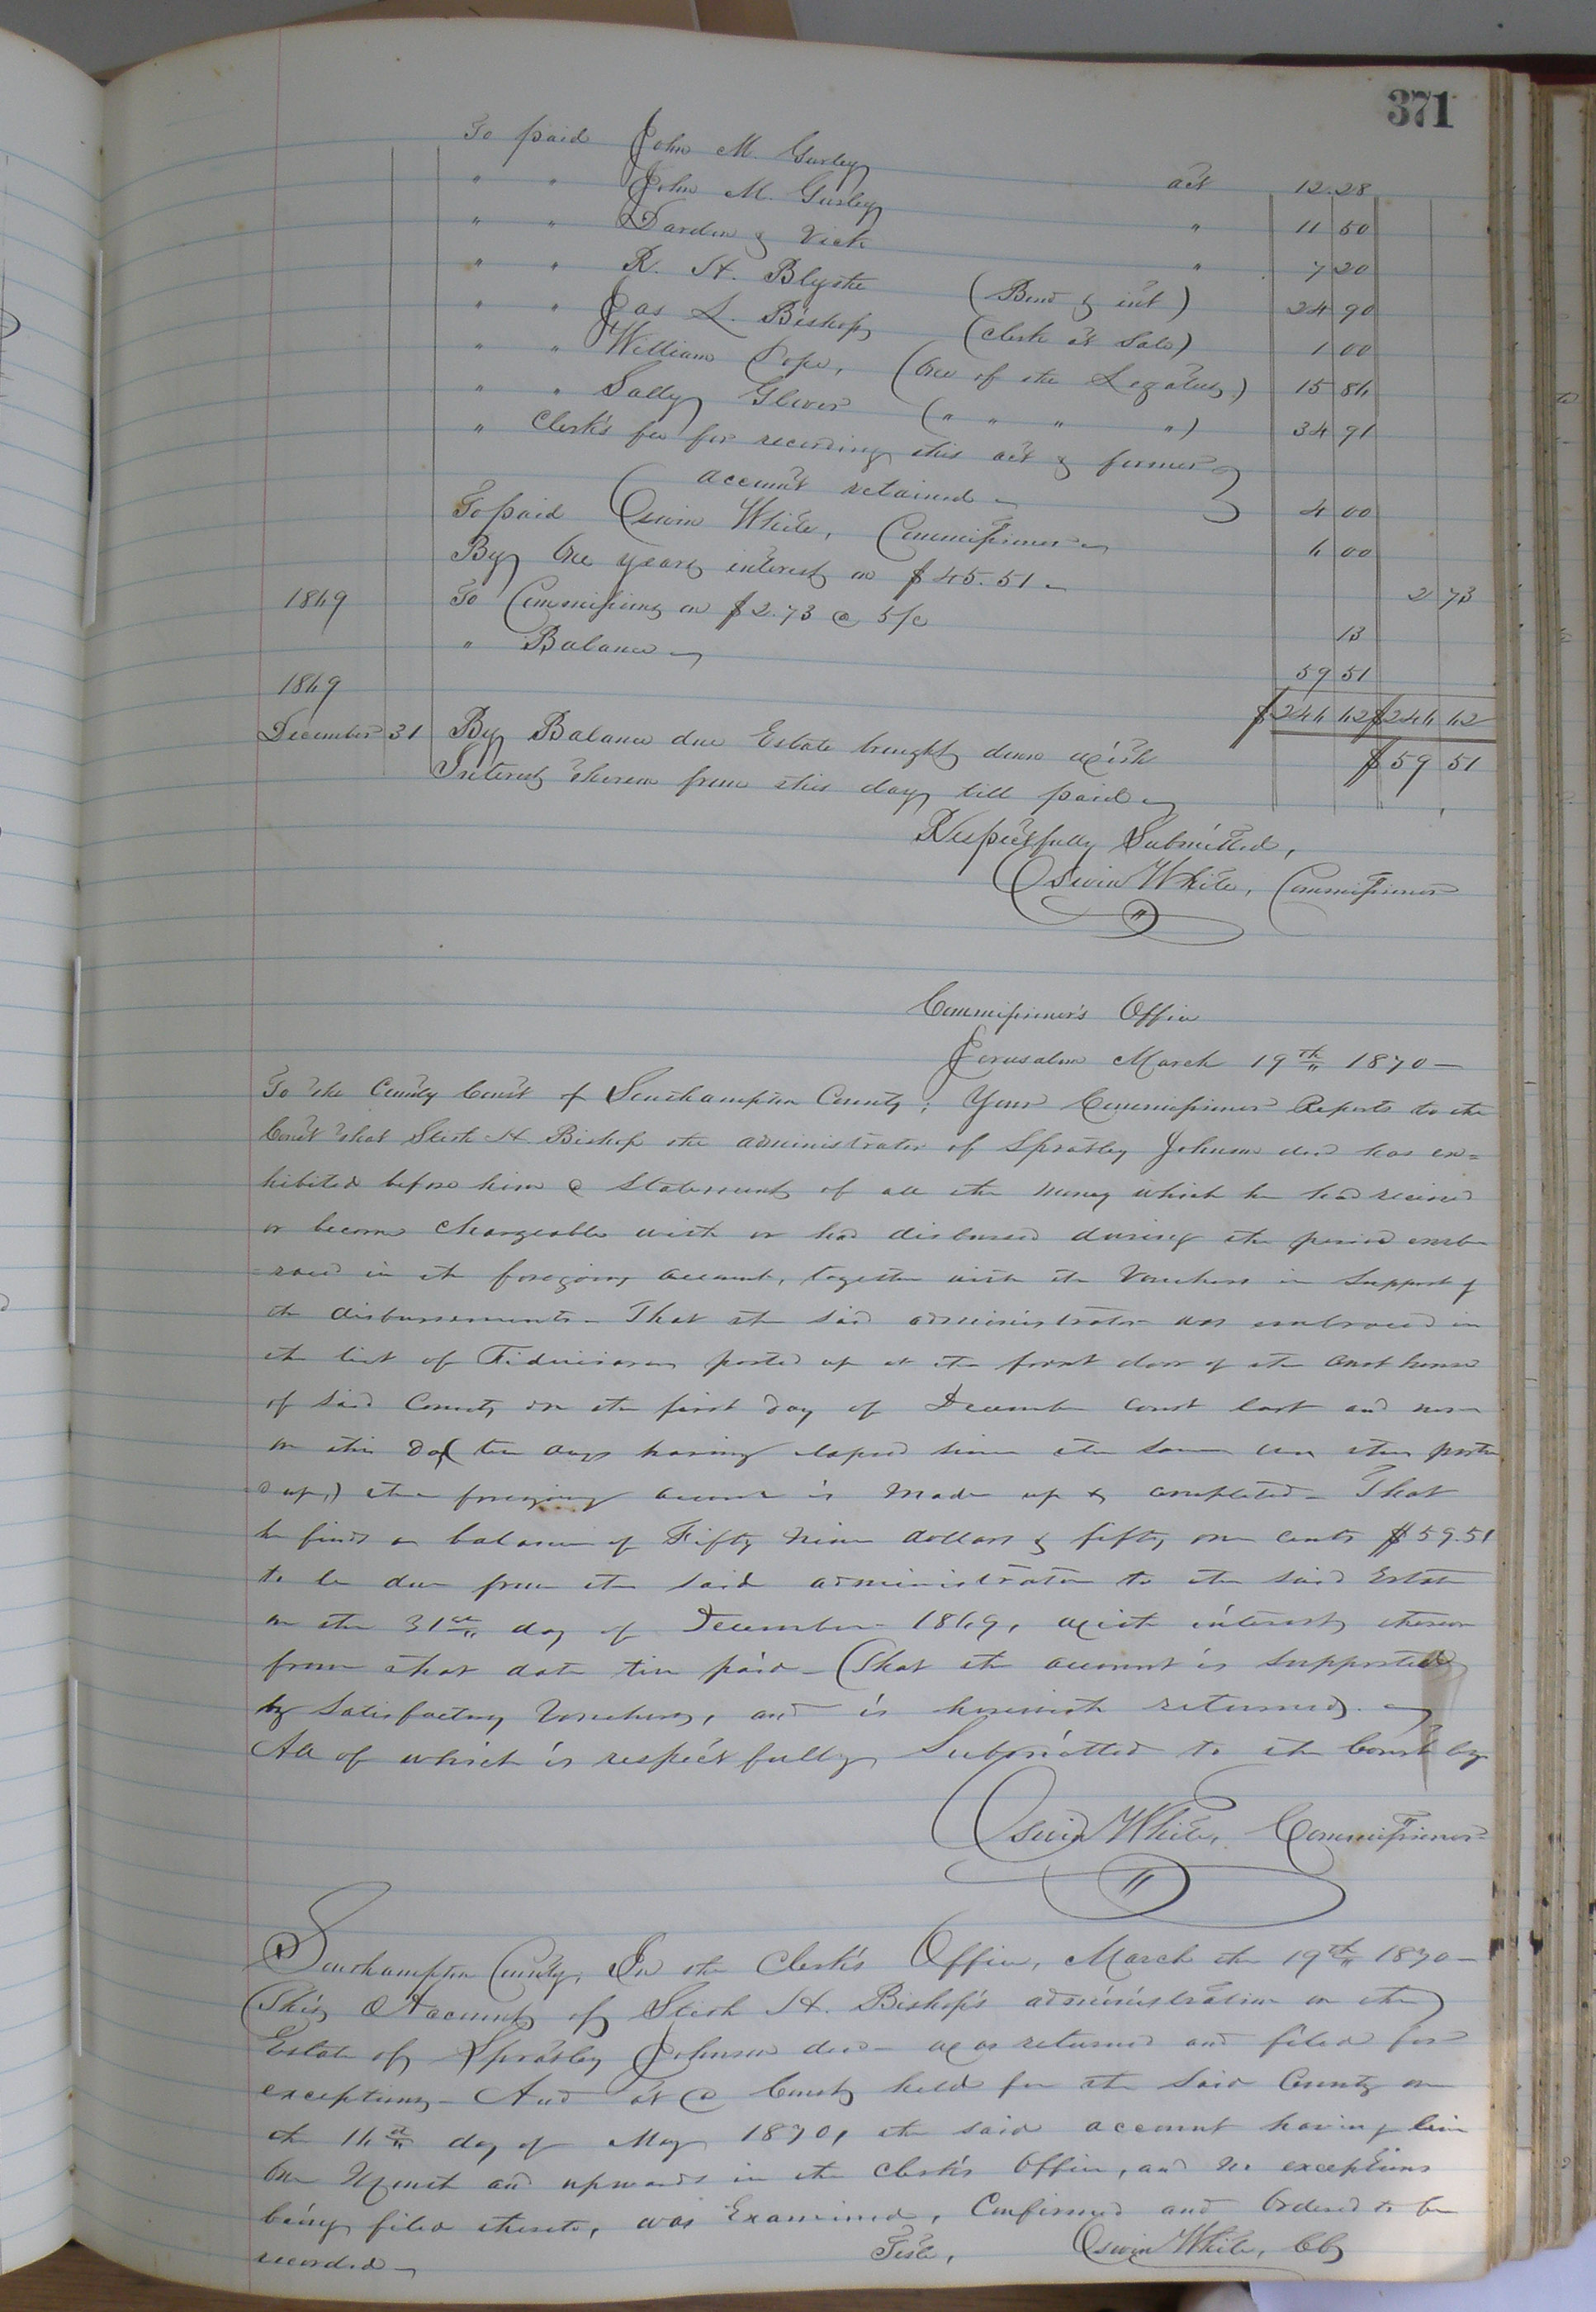 371
To paid John M. Gurley act 12.28
" " John M. Gurley " 11 50
" " Darden & Vick " 7 20
" " R. H. Blythe (Bond & int) 24 90
" " Jas L. Bishop (Clerk at Sale) 1 00
" " William Pope, (One of the Legatees) 15 86
" " Sally Glover ( " " " " ) 34 91
" Clerk's fee for recording this act & former
account retained 4 00
To paid Oswin White, Commissioner 6 00
By One years interest on $45.51 2 73
1869 To Commissions on $2.73 @ 5 pc 13
" Balance 59 51
1869 $246 62 $246 62
December 31 By Balance due Estate brought down with $59 51
Interest thereon from this day till paid
Respectfully Submitted,
Oswin White, Commissioner
Commissioner's Office
Jerusalem March 19th 1870 —
To the County Court of Southampton County; Your Commissioner Reports to the
Court that Stith H. Bishop the administrator of Spratley Johnson decd has ex=
hibited before him a Statement of all the money which he had received
or become chargeable with or had disbursed during the period emb
raced in the foregoing account, together with the Vouchers in Support of
the disbursements — That the said administrator was embraced in
the list of Fiduciaries posted up at the front door of the Court house
of said County on the first day of December Court last and now
on this day (ten days having elapsed since the same was thus poste
d up,) the foregoing account is made up & completed — That
he finds a balance of Fifty Nine dollars & fifty one cents $59.51
to be due from the said administrator to the said Estate
on the 31st day of December 1869, with interest thereon
from that date till paid — That the account is supported
by Satisfactory Vouchers, and is herewith returned.
All of which is respectfully Submitted to the Court by
Oswin White, Commissioner
Southampton County, In the Clerk's Office, March the 19th 1870 —
This Account of Stith H. Bishop's administration on the
Estate of Spratley Johnson decd — was returned and filed for
exceptions — And at a Court held for the Said County on
the 16th day of May 1870, the said account having lain
One Month and upwards in the Clerk's Office, and no exceptions
being filed thereto, was Examined, Confirmed and Ordered to be
recorded — Teste, Oswin White, CC